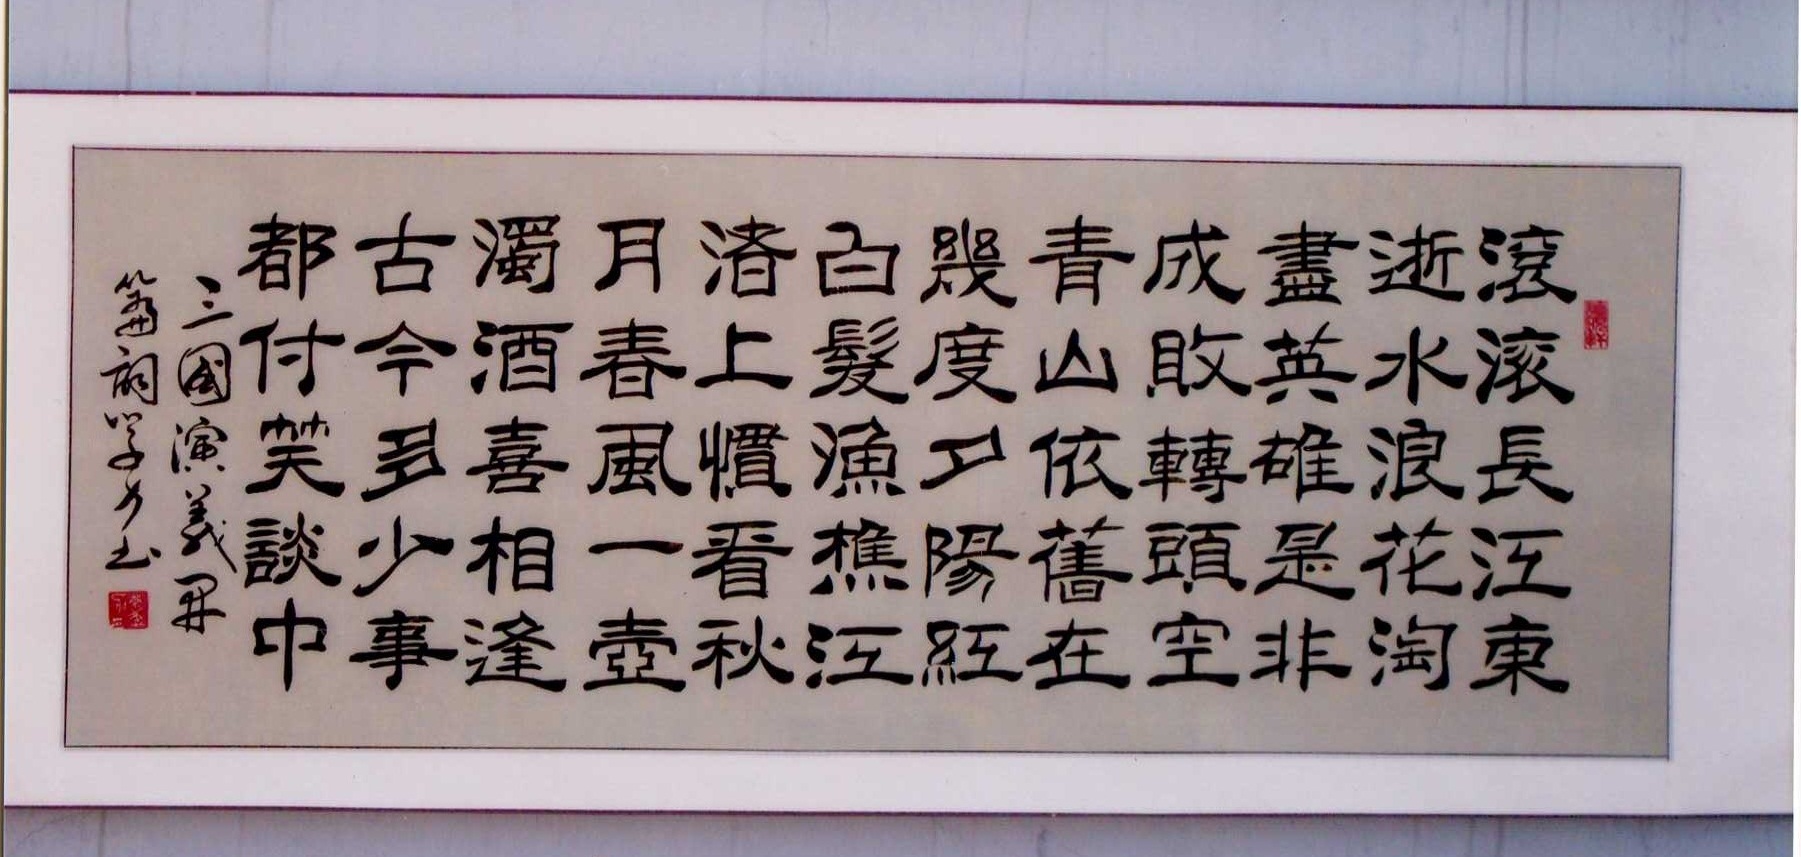 滾滚長江東
逝水浪花淘
盡英雄是非
成敗轉頭空
青山依舊在
幾度夕陽紅
白髮漁樵江
渚上慣看秋
月春風一壺
濁酒喜相逢
古今多少事
都付笑談中
三國演義開
篇詞